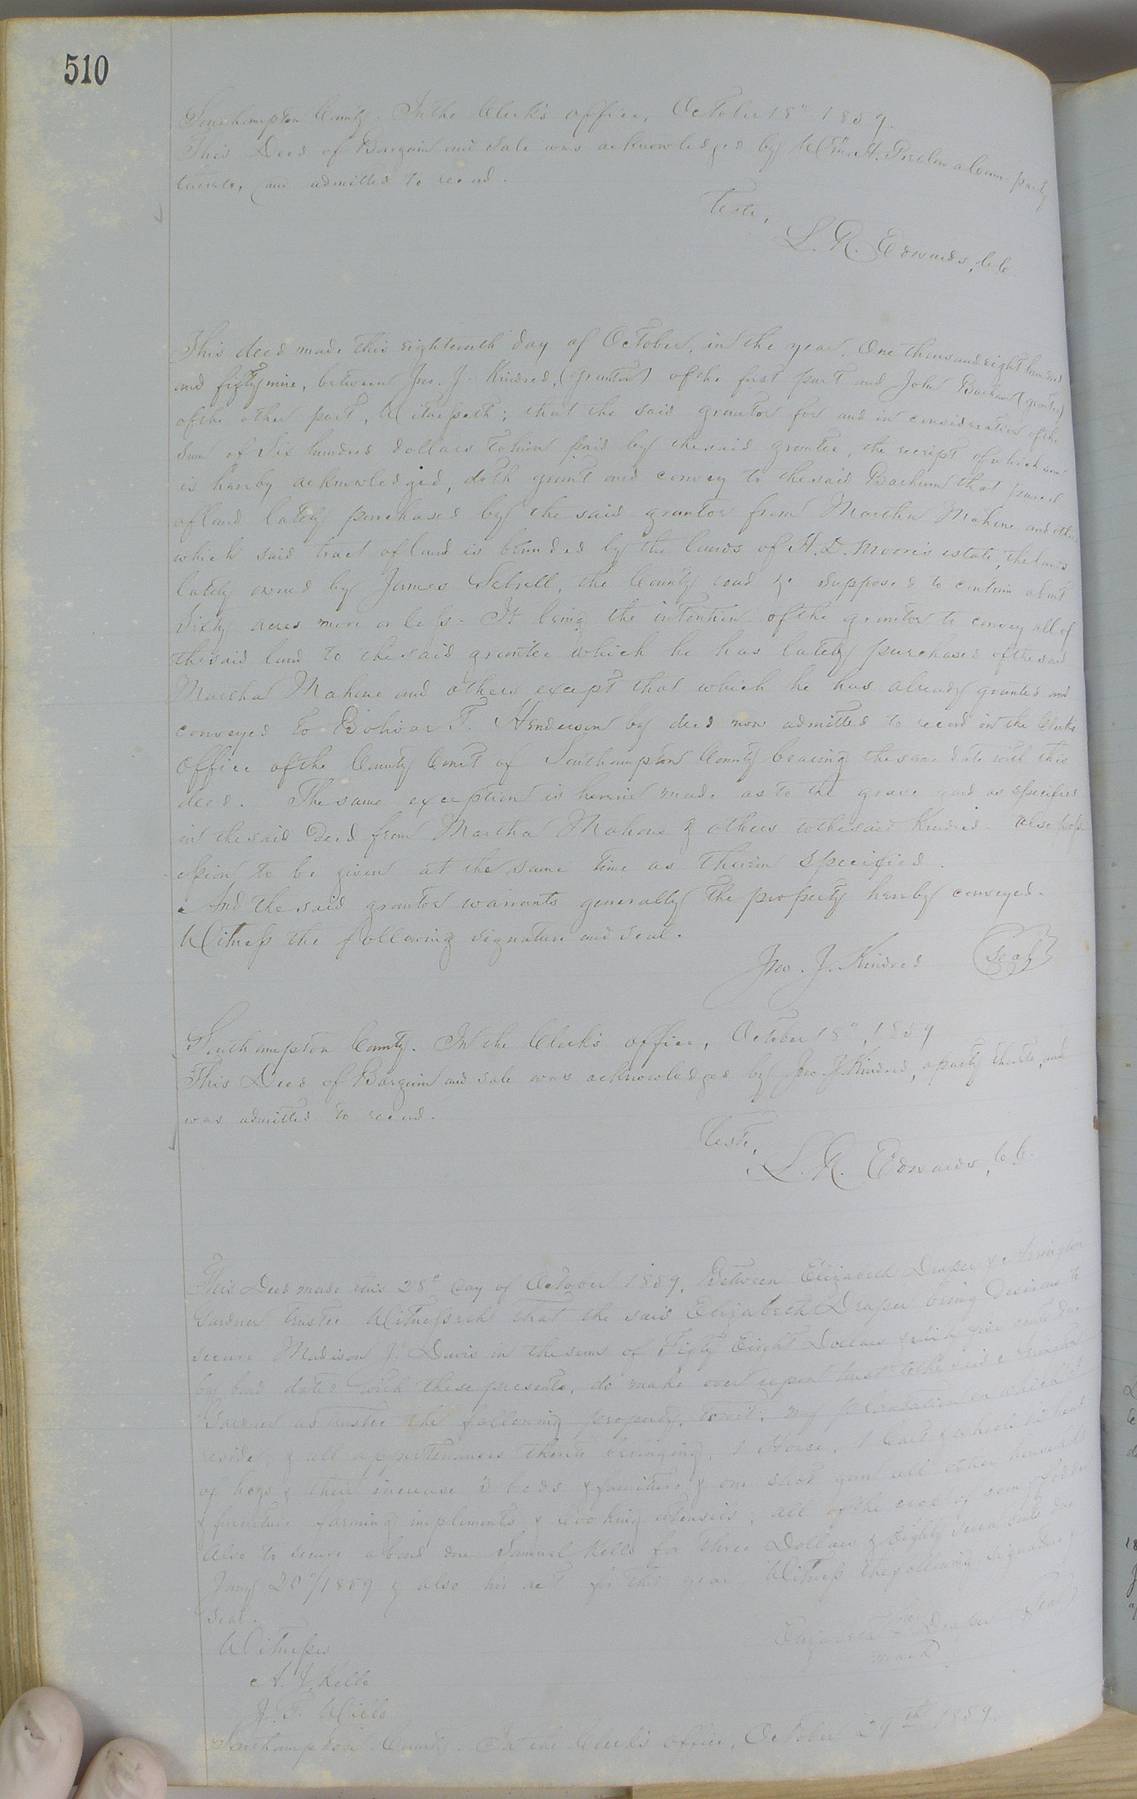 510
Southampton County. In the Clerk's office, October 18th 1859.
This Deed of Bargain and Sale was acknowledged by Wm. H. a party
thereto, and admitted to record.
Teste,
L. R. Edwards, C.C.
This deed made this eighteenth day of October, in the year, One thousand eight hundred
and fifty nine, between Jno. J. Kindred, (grantor) of the first part and John Barham (grantee)
of the other part, Witnesseth; that the said grantor for and in consideration of the
sum of Six hundred dollars to him paid by the said grantee, the receipt of which
is hereby acknowledged, doth grant and convey to the said Barham that parcel
of land lately purchased by the said grantor from Martha Mahone and others
which said tract of land is bounded by the lands of H. D. Morris estate, the lands
lately owned by James Sebrell, the County road &c supposed to contain about
Sixty acres more or less. It being the intention of the grantor to convey all of
the said land to the said grantee which he has lately purchased of the said
Martha Mahone and others except that which he has already granted and
conveyed to Bolivar T. Henderson by deed now admitted to record in the Clerks
Office of the County Court of Southampton County bearing the same date with this
deed. The same exception is herein made as to the grave yard as specified
in the said Deed from Martha Mahone & others to the said Kindred. Also poss
ession to be given at the same time as therein specified.
And the said grantor warrants generally the property hereby conveyed.
Witness the following signature and seal.
Jno. J. Kindred Seal
Southampton County. In the Clerk's office, October 18th, 1859
This Deed of Bargain and Sale was acknowledged by Jno. J. Kindred, a party thereto, and
was admitted to record.
Teste,
L. R. Edwards, C.C.
This Deed made this 28th day of October 1859, Between Elizabeth Draper &
Gardner trustee Witnesseth that the said Elizabeth Draper being desirous to
secure Madison J. Davis in the sum of Fifty Eight Dollars & due
by bond dated with these presents, do make over upon trust to the said
Gardner as trustee the following property, to wit: my plantation on which I
reside, & all appurtenances thereto belonging, 1 Horse, 1 Cart & wheels, head
of hogs & their increase, beds & furniture, & one shot gun all other household
& furniture farming implements & Cooking utensils, all of the crop of corn & fodder
Also to secure a bond due Samuel Kello for three Dollars & Eighty Seven Cents due
Jany 20th/1859 & also his act for this year. Witness the following signature &
Seal.
Elizabeth Draper Seal
mark
Witness
A. J. Kello
J. T.
Southampton County. In the Clerk's Office, October 29th 1859.